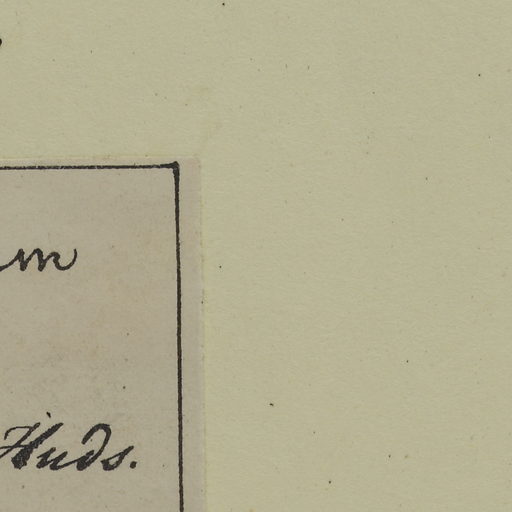 m
Huds.